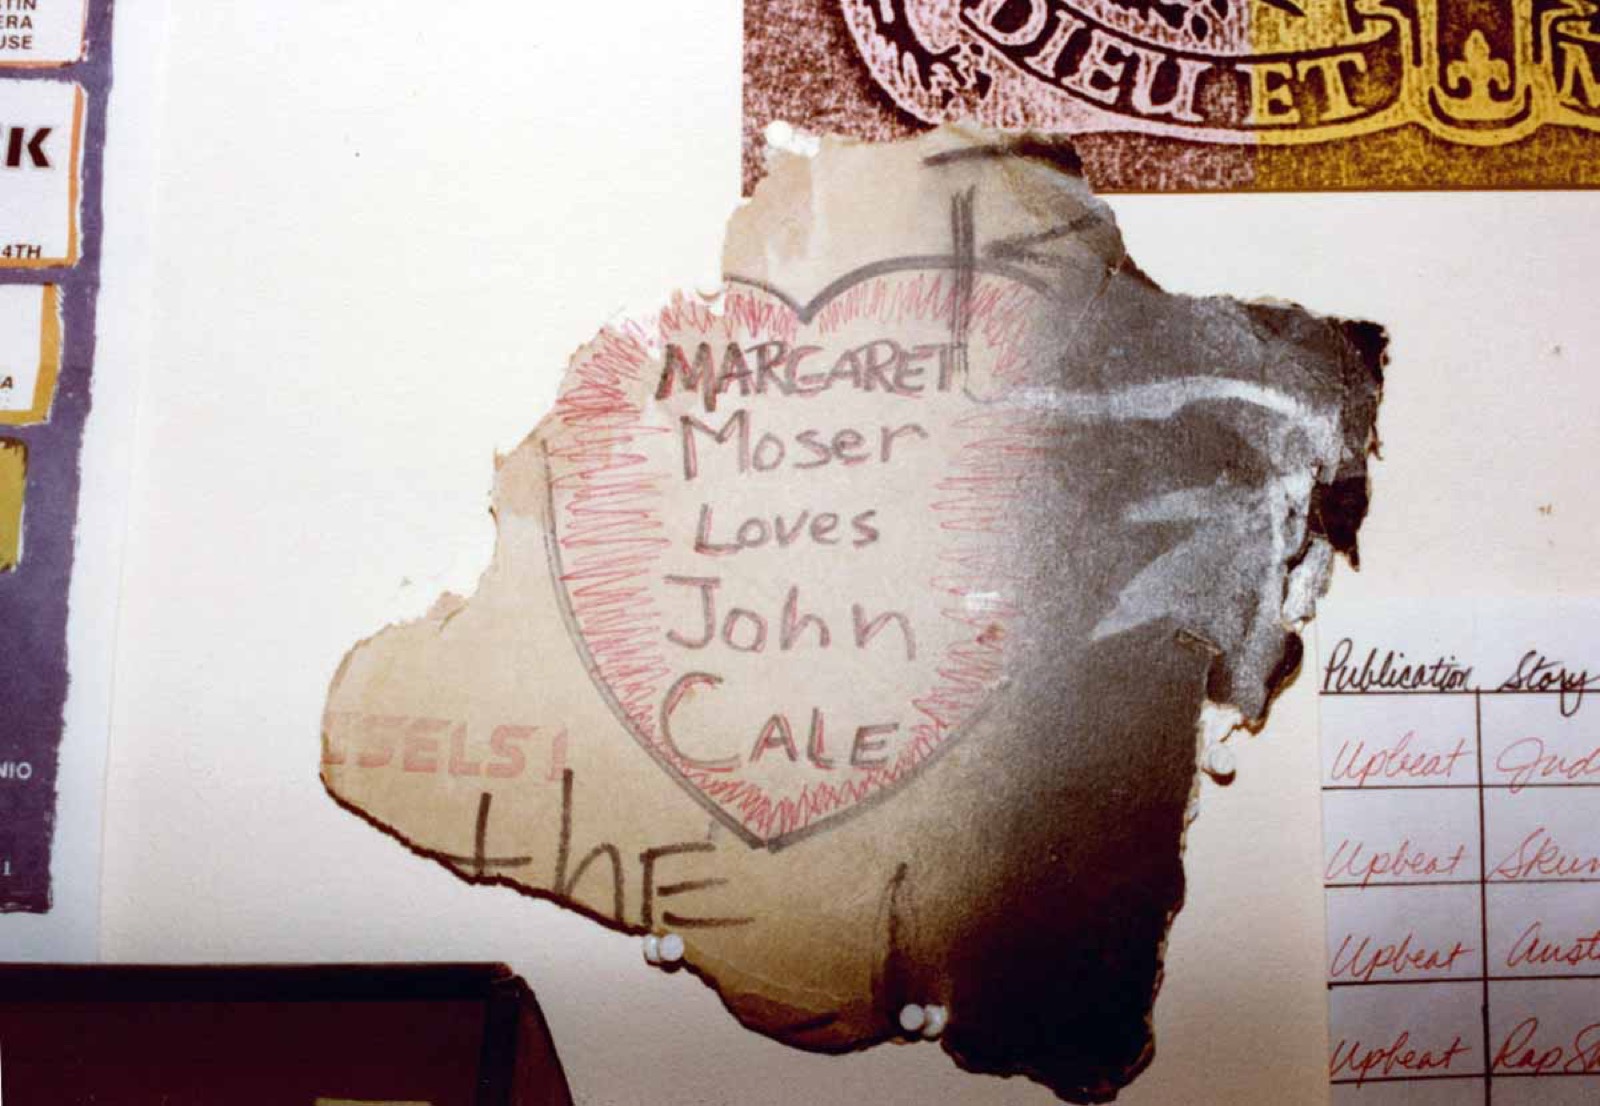 TIN
ERA
USE
K
4TH
A
NIO
1
DIEU ET
K
MARGARET
Moser
Loves
John
CALE
SELS!
thE
Publication Story
Upbeat Jud
Upbeat Skun
Upbeat Aust
Upbeat Rap Sh